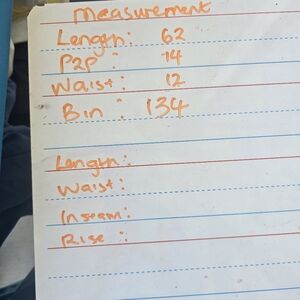 Measurement
Length: 62
P2P : 14
Waist: 12
Bin : 134
Length:
Waist:
Inseam:
Rise :